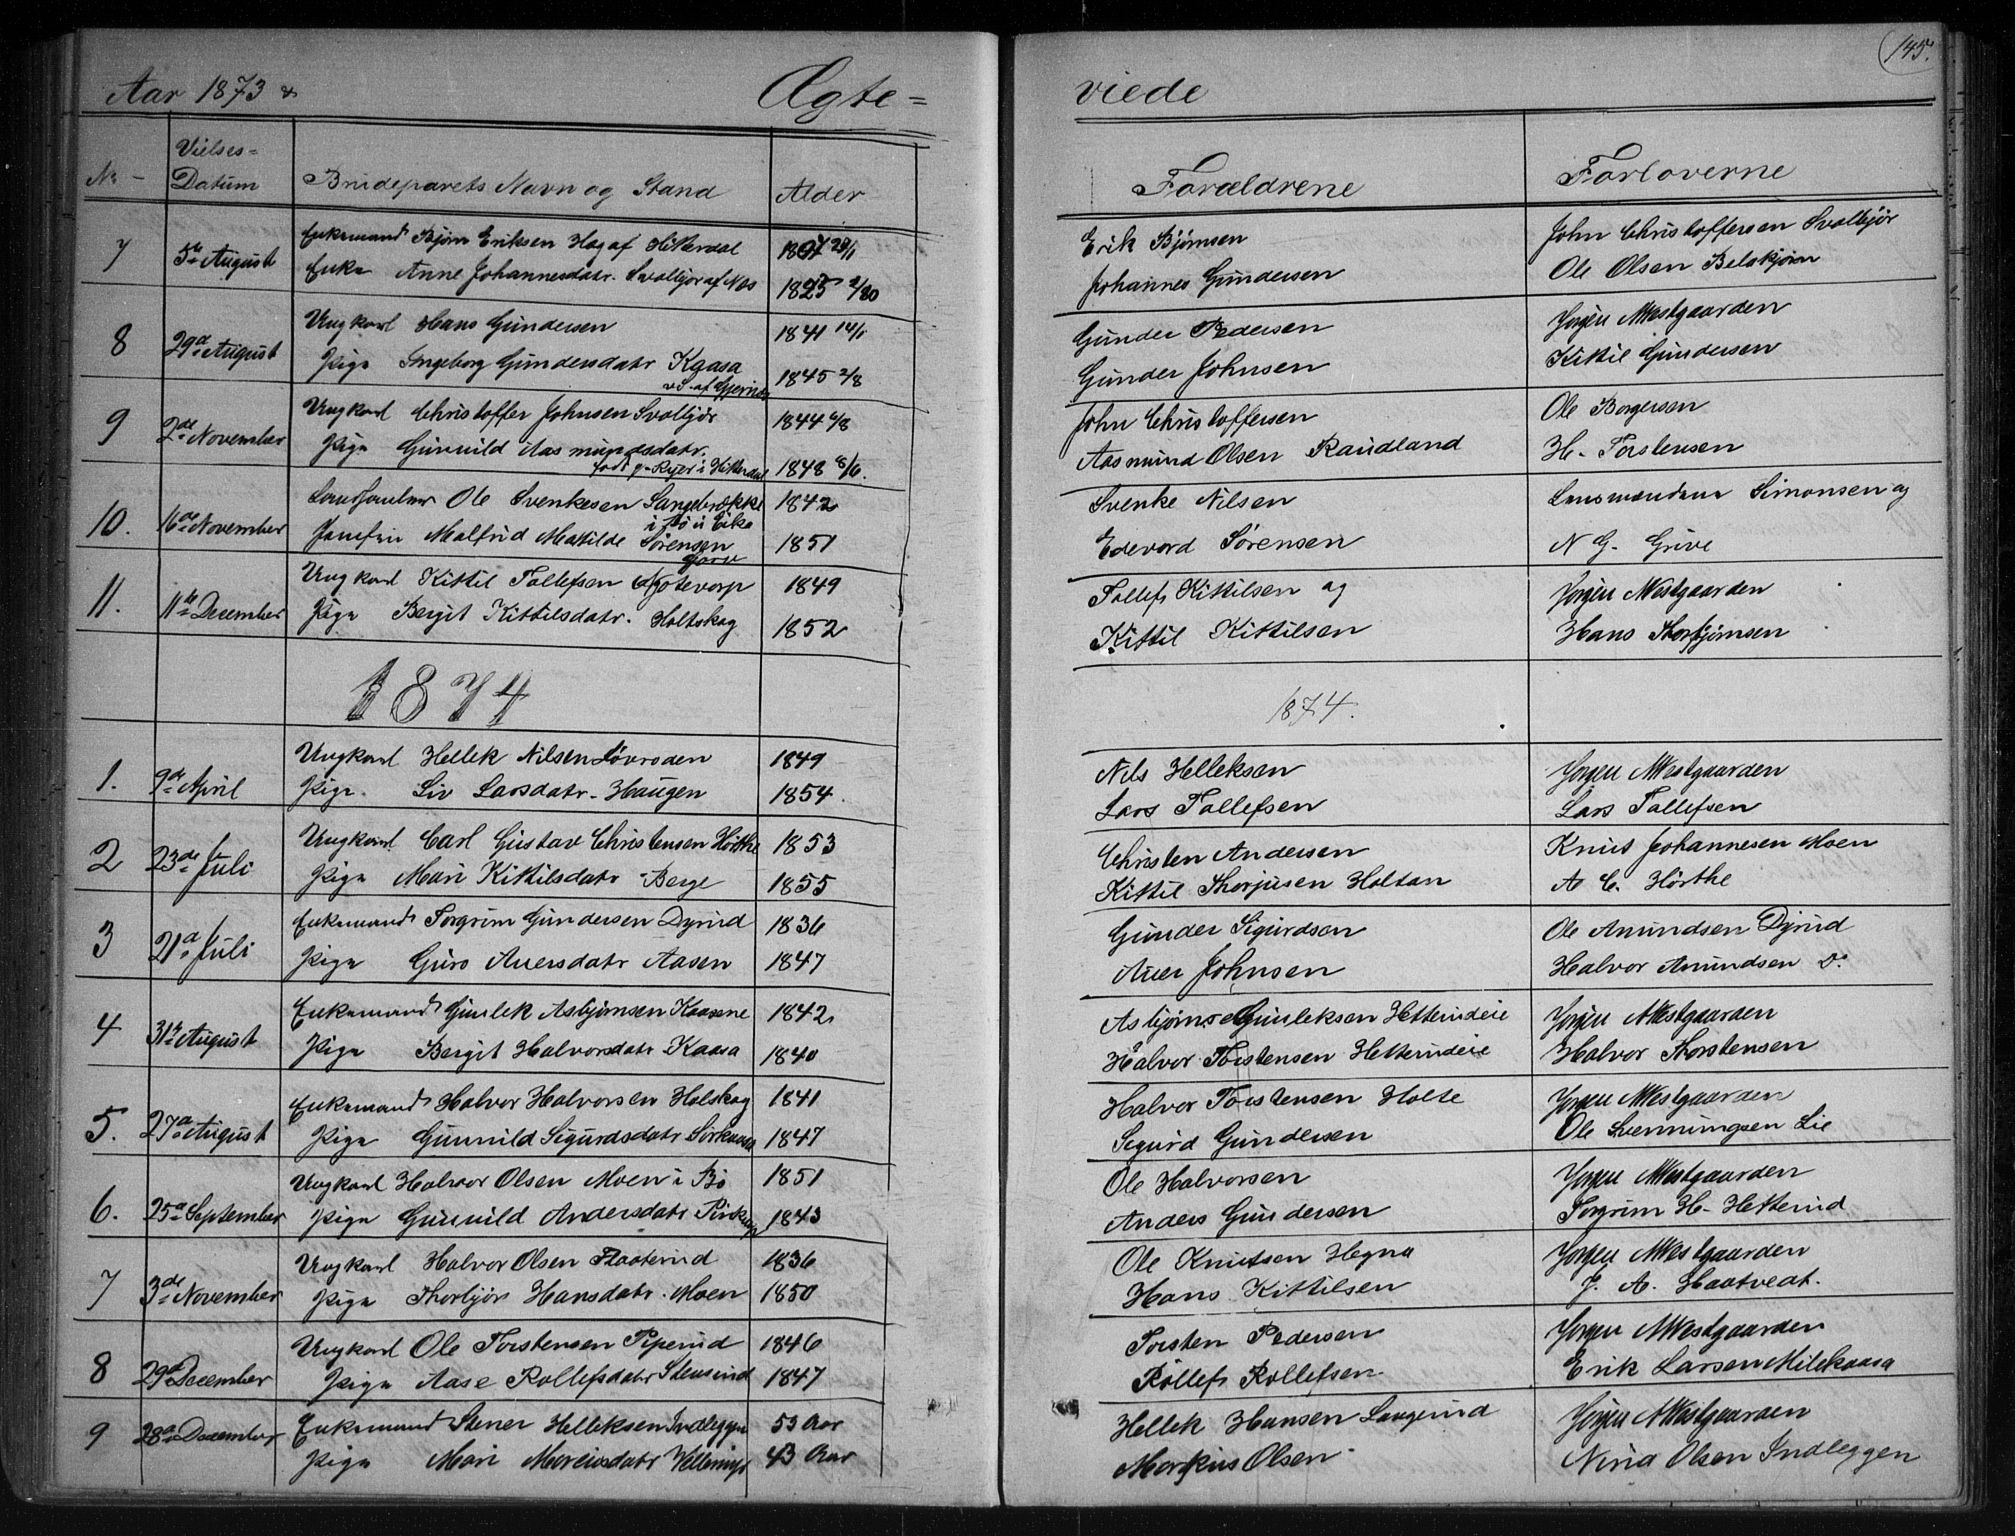 145.
Aar 1873 Ægte= viede
No - Vielses= Datum Brudeparets Navn og Stand Alder Forældrene Forloverne
7 5te August Enkemand Bjørn Eriksen Hag af Hitterdal 1807 29/1 Erik Bjørnsen John Christoffersen Svalbjør
Enke Anne Johannesdatr. Svalbjør af Næs 1825 Johannes Gundersen Ole Olsen
8 29de August Ungkarl Hans Gundersen 1841 14/1 Gunder Pedersen Jørgen MWestgaarden
Pige Ingeborg Gundersdatr Kaasa 1845 2/8 Gunder Johnsen Kittil Gundersen
9 2de November Ungkarl Christoffer Johnsen Svalbjør 1844 6/8 John Christoffersen Ole Borgersen
Pige Gunnild Aasmundsdatr. 1848 8/6. Aasmund Olsen Raudland H. Torstensen
10. 16de November Ole Svenkesen 1842 Svenke Nilsen Lensmændene Simonsen og
Jomfru Malfrid Matilde Sørensen 1851 Edevard Sørensen N G. Grive
11. 11te December Ungkarl Kittil Tollefsen 1849 Tollef Kittilsen og Jørgen MWestgaarden
Pige Bergit Kittilsdatr. Holtskog 1852 Kittil Kittilsen Hans Thorbjørnsen
1874 1874.
1. 9de April Ungkarl Hellek Nilsen Løvroden 1849 Nils Helleksen Jørgen MWestgaarden
Pige. Liv Larsdatr. Haugen 1854. Lars Tollefsen Lars Tollefsen
2 23de Juli Ungkarl Carl Gustav Christensen Hørthe 1853 Christen Andersen Knut Johannesen Moen
Pige Mari Kittilsdatr Berge 1855 Kittil Thorjusen Holtan A C. Hørthe
3 21de Juli Enkemand Torgrim Gundersen Dyrud 1836 Gunder Sigurdsen Ole Amundsen Dyrud
Pige Guro Auersdatr Aasen 1847 Auer Johnsen Halvor Amundsen Do
4 31te August Enkemand Gunlek Asbjørnsen Kaasene 1842 Asbjørnsen Gunleksen Hetterudeie Jørgen MWestgaarden
Pige Bergit Halvorsdatr Kaasa 1840 Halvor Torstensen Hetterudeie Halvor Thorstensen
5. 27de August Enkemand Halvor Halvorsen Holskog 1841 Halvor Torstensen Holte Jørgen MWestgaarden
Pige Gunnild Sigurdsdatr Sørkaasa 1847 Sigurd Gundersen Ole Svenningsen Lie
6. 25de September Ungkarl Halvor Olsen Moen i Bø 1851 Ole Halvorsen Jørgen MWestgaarden
Pige Gunnild Andersdatr 1843 Anders Gundersen Torgrim H. Hetterud
7 3de November Ungkarl Halvor Olsen Flaaterud 1836 Ole Knutsen Hegna Jørgen MWestgaarden
Pige Thorbjør Hansdatr. Moen 1850 Hans Kittilsen J. A. Haatvedt.
8 29de December Ungkarl Ole Torstensen Piperud 1846 Torsten Pedersen Jørgen MWestgaarden
Pige Aase Rollefsdatr Stensrud 1847 Rollef Rollefsen. Erik Larsen Milekaasa
9 28de December Enkemand Stener Helleksen Indleggen 53 Aar Hellek Hansen Langerud Jørgen MWestgaarden
Pige Mari 43 Aar Markus Olsen Nirid Olsen Indleggen